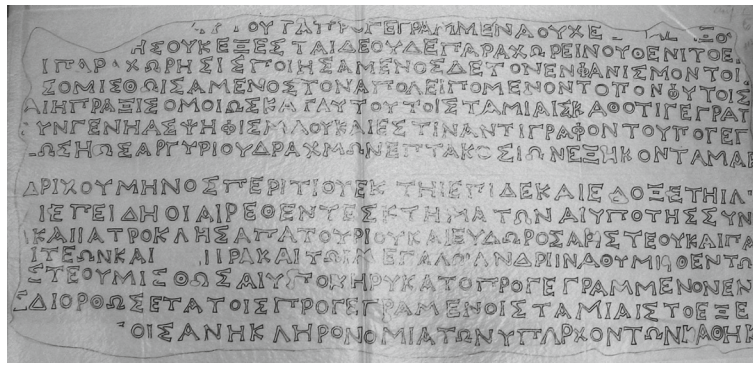 ΟΥΤΑΠΡΟΓΕΓΡΑΜΜΕΝΑΟΥΧΕ
ΗΣΟΥΚΕΞΕΣΤΑΙΔΕΟΥΔΕΠΑΡΑΧΩΡΕΙΝΟΥΘΕΝΙΤΟΕ
ΙΠΑΡΑΧΩΡΗΣΙΣΠΟΙΗΣΑΜΕΝΟΣΔΕΤΟΝΕΝΦΑΝΙΣΜΟΝΤΟΙ
ΣΟΜΙΣΘΩΣΑΜΕΝΟΣΤΟΝΑΠΟΛΕΙΠΟΜΕΝΟΝΤΟΠΟΝΦΥΤΟΙΣ
ΑΙΗΠΡΑΞΙΣΟΜΟΙΩΣΚΑΙΑΥΤΟΥΤΟΙΣΤΑΜΙΑΙΣΚΑΘΟΤΙΓΕΓΡΑΠ
ΣΥΝΓΕΝΗΑΣΨΗΦΙΣΜΑΟΥΚΑΙΕΣΤΙΝΑΝΤΙΓΡΑΦΟΝΤΟΥΠΟΓΕΓ
ΩΣΗΩΣΑΡΓΥΡΙΟΥΔΡΑΧΜΩΝΕΠΤΑΚΟΣΙΩΝΕΞΗΚΟΝΤΑΜΑΡ
ΔΡΙΧΟΥΜΗΝΟΣΠΕΡΙΤΙΟΥΕΚΤΗΙΕΠΙΔΕΚΑΙΕΔΟΞΕΤΗΙΛ
ΙΕΠΕΙΔΗΟΙΑΙΡΕΘΕΝΤΕΣΚΤΗΜΑΤΩΝΑΙΥΠΟΤΗΣΣΥΝ
ΙΚΑΙΠΑΤΡΟΚΛΗΣΑΠΑΤΟΥΡΙΟΥΚΑΙΕΥΔΩΡΟΣΑΡΙΣΤΕΟΥΚΑΙΠΑ
ΙΤΕΩΝΚΑΙ ΙΡΑΚΑΙΤΩΙΜΕΓΑΛΩΙΑΝΔΡΙΙΝΑΘΥΜΙΩΘΕΝΤΩ
ΣΤΕΟΥΜΙΣΘΩΣΑΙΥΠΟΚΗΡΥΚΑΤΟΠΡΟΓΕΓΡΑΜΜΕΝΟΝΕΝ
ΣΔΙΟΡΘΩΣΕΤΑΤΟΙΣΠΡΟΓΕΓΡΑΜΕΝΟΙΣΤΑΜΙΑΙΣΤΟΕΞΕ
ΟΙΣΑΝΗΚΛΗΡΟΝΟΜΙΑΤΩΝΥΠΑΡΧΟΝΤΩΝΚΑΘΗΚ